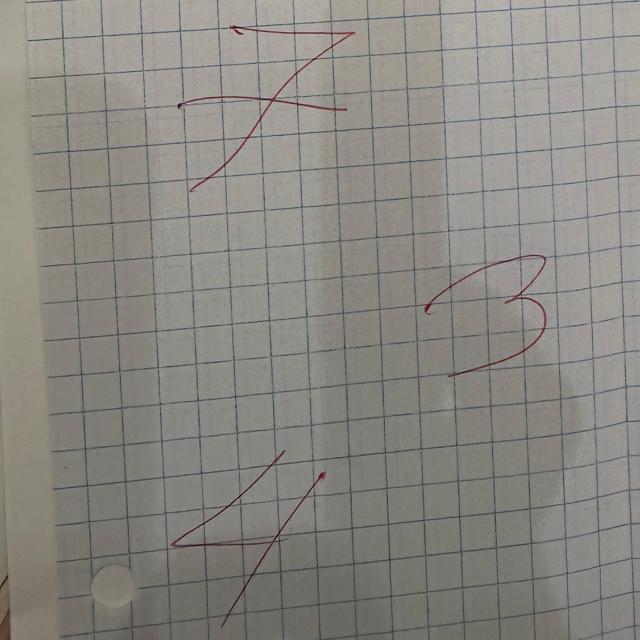 7
3
4